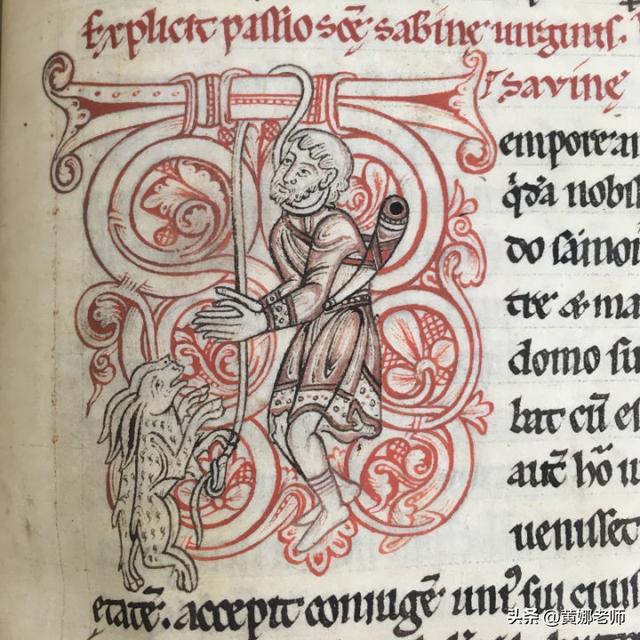 Explicit passio scę sabinę uirginis.
savinę
empore
qdā nobil
do
tre & ma
domo su
bat cū es
aut hō
uenisset
etatē. accepit coniugē uni᾽ sui
头条 @黄娜老师